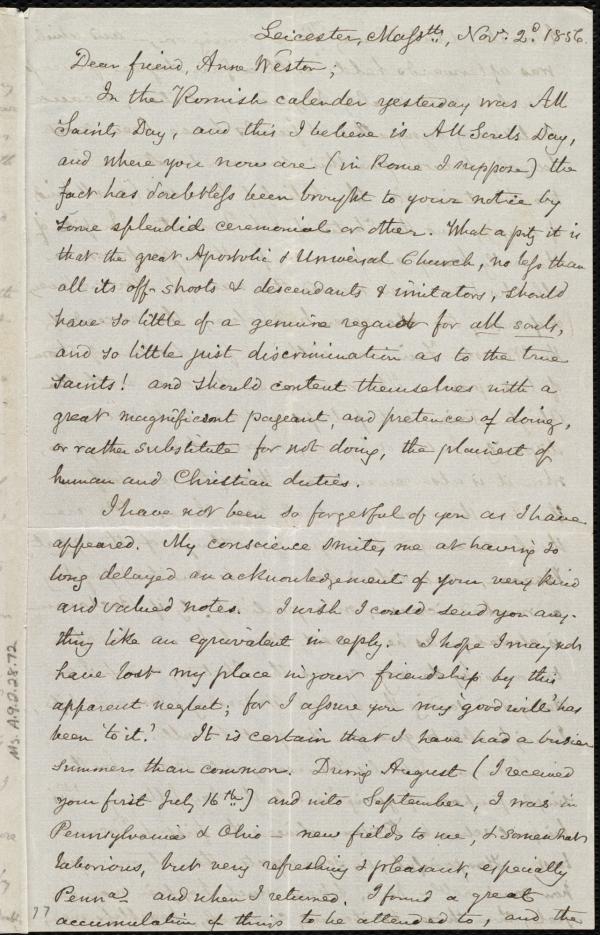 Leicester, Massts., Nov. 2d. 1856.
Dear friend, Anne Weston;
In the Romish calender yesterday was All
Saints Day, and this I believe is All Souls Day,
and where you now are (in Rome I suppose) the
fact has doubtless been brought to your notice by
some splendid ceremonial or other. What a pity it is
that the great Apostolic & Universal Church, no less than
all its off-shoots & descendants & imitators, should
have so little of a genuine regard for all souls,
and so little just discrimination as to the true
saints! and should content themselves with a
great magnificent pageant, and pretence of doing,
or rather substitute for not doing, the plainest of
human and Christian duties.
I have not been so forgetful of you as I have
appeared. My conscience smites me at having so
long delayed an acknowledgement of your very kind
and valued notes. I wish I could send you any-
thing like an equivalent in reply. I hope I may not
have lost my place in your friendship by this
apparent neglect; for I assure you my 'good will' has
been 'to it.' It is certain that I have had a busier
summer than common. During August (I received
your first July 16th.) and into September, I was in
Pennsylvania & Ohio – new fields to me, & somewhat
laborious, but very refreshing & pleasant, especially
Penna. and when I returned, I found a great
accumulation of things to be attended to, and the
Ms. A.9.2.28.72